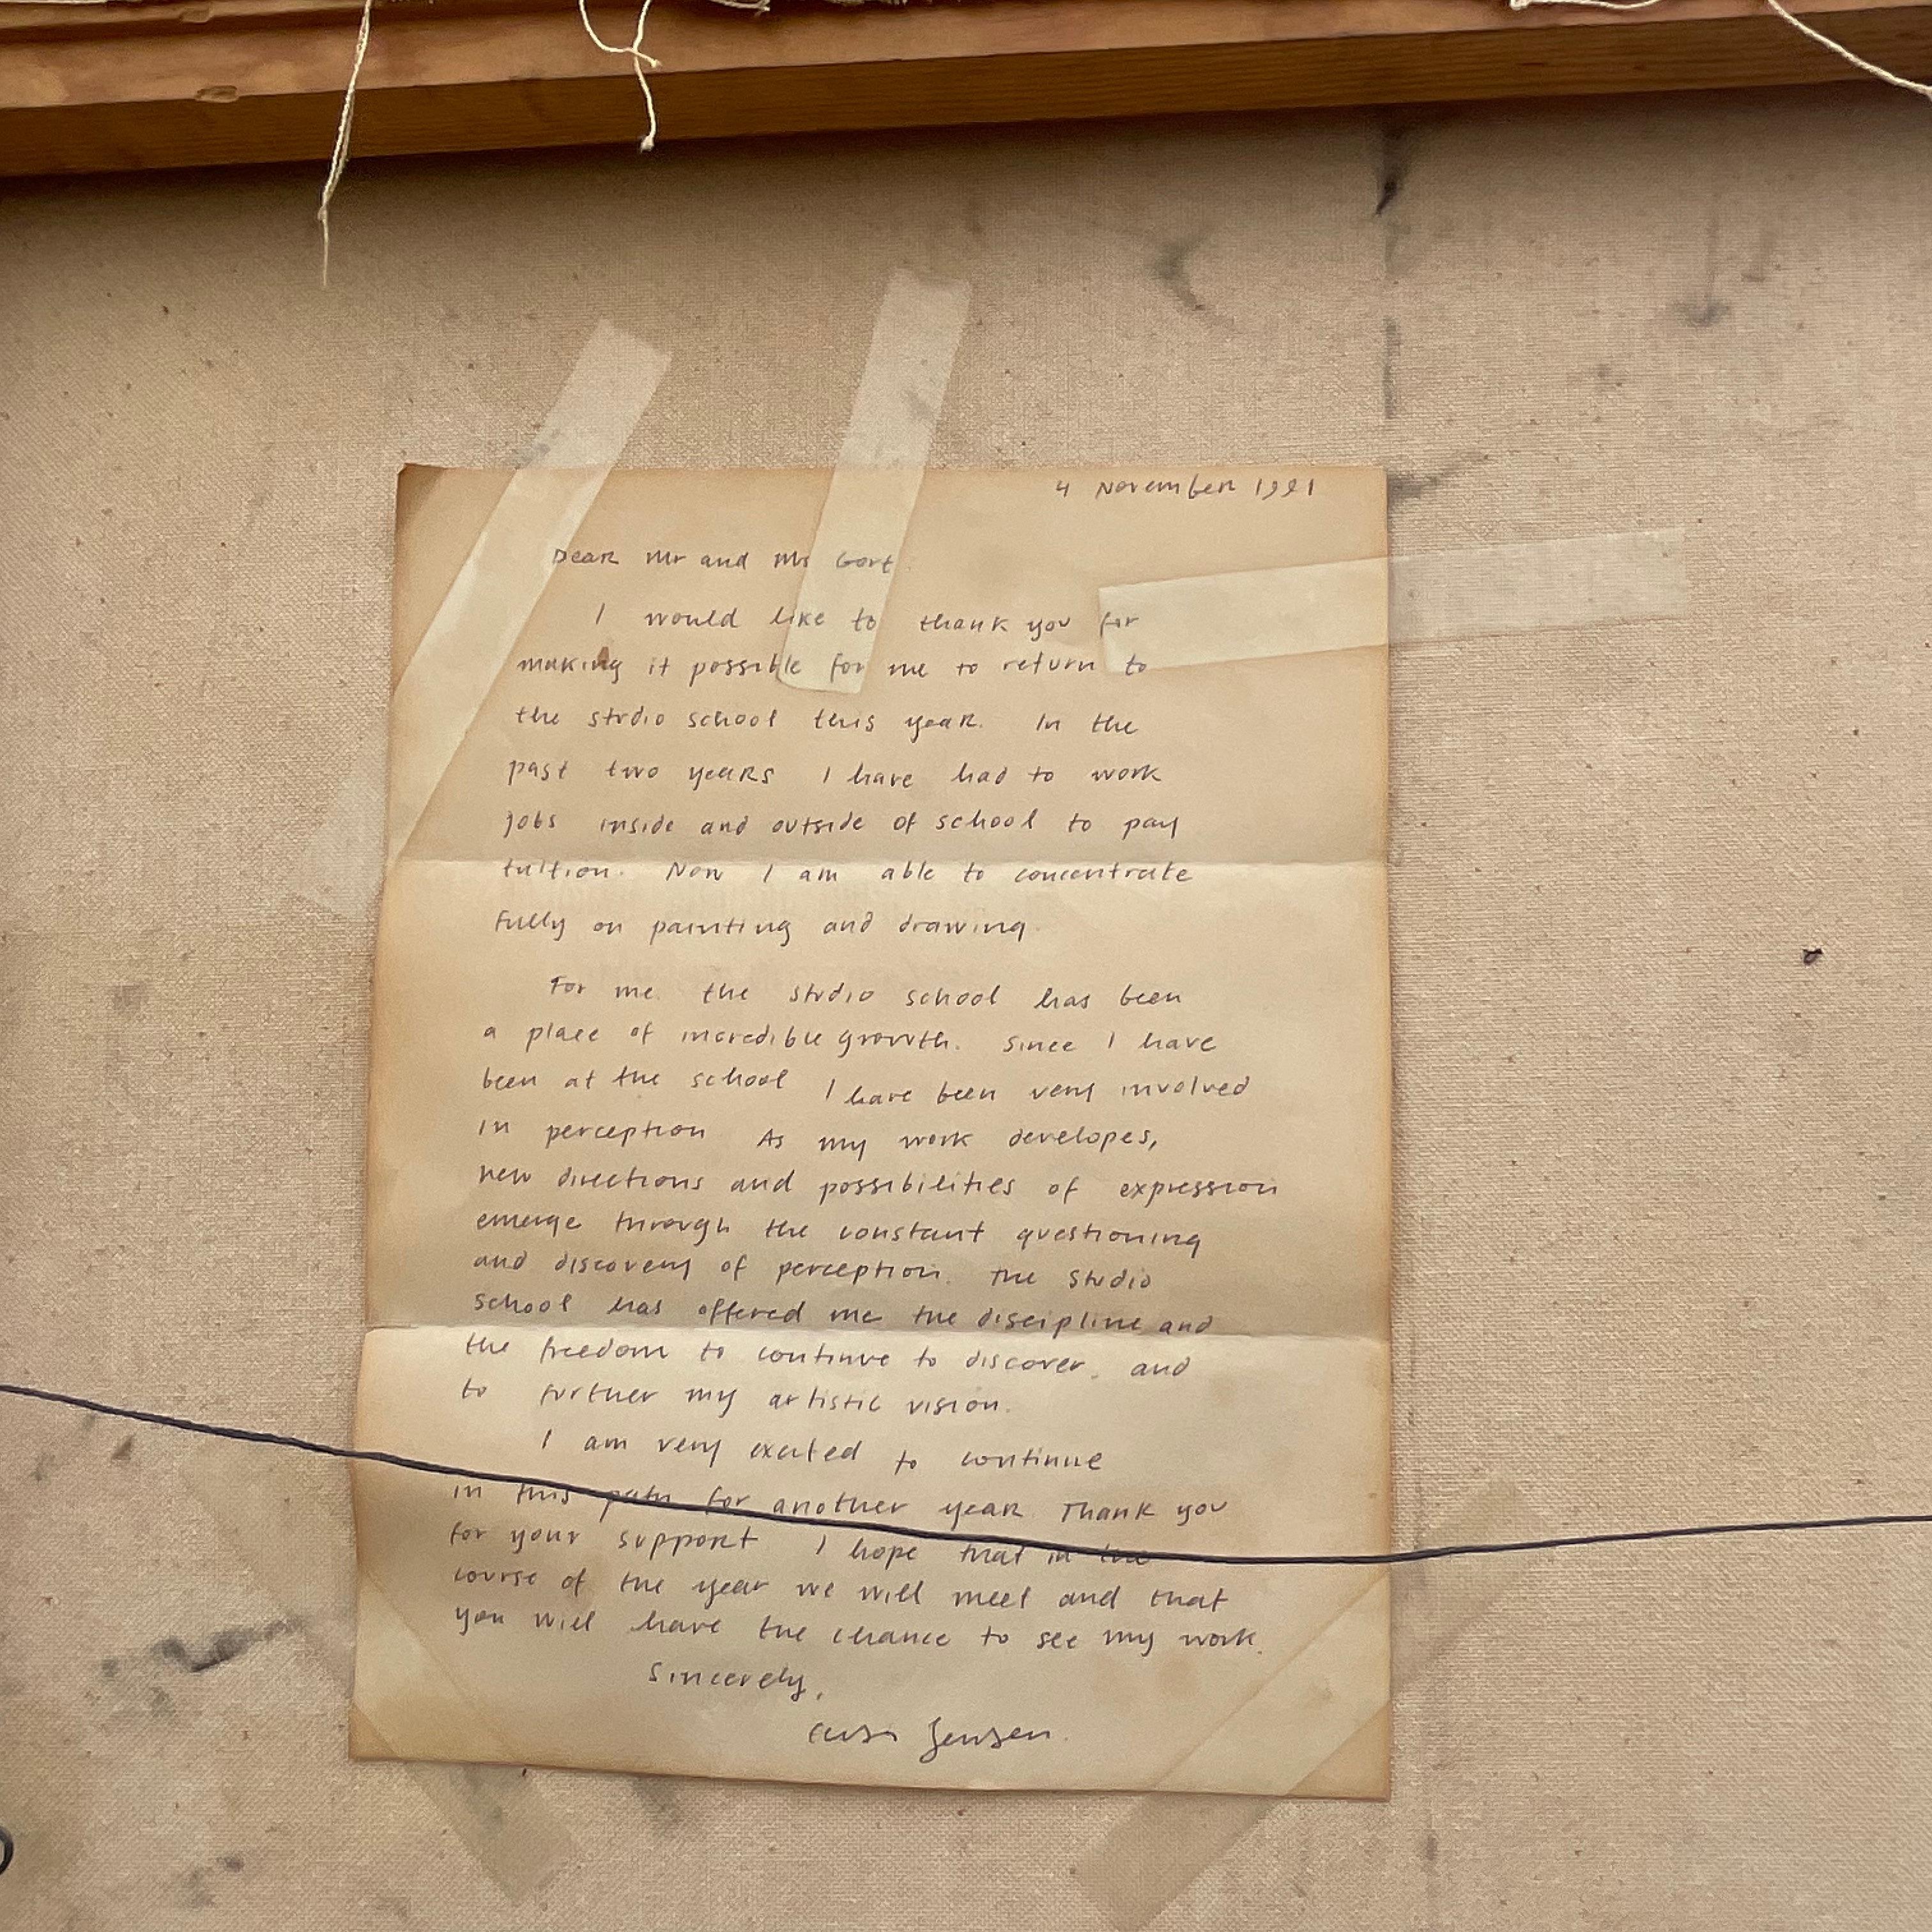 4 November 1991
Dear Mr and Ms Gort
I would like to thank you for
making it possible for me to return to
the studio school this year. In the
past two years I have had to work
jobs inside and outside of school to pay
tuition. Now I am able to concentrate
fully on painting and drawing.
For me the studio school has been
a place of incredible growth. Since I have
been at the school I have been very involved
in perception As my work developes,
new directions and possibilities of expression
emerge through the constant questioning
and discovery of perception. The Studio
School has offered me the discipline and
the freedom to continue to discover, and
to further my artistic vision.
I am very excited to continue
in this path for another year. Thank you
for your support I hope that in the
course of the year we will meet and that
you will have the chance to see my work.
Sincerely,
Jensen